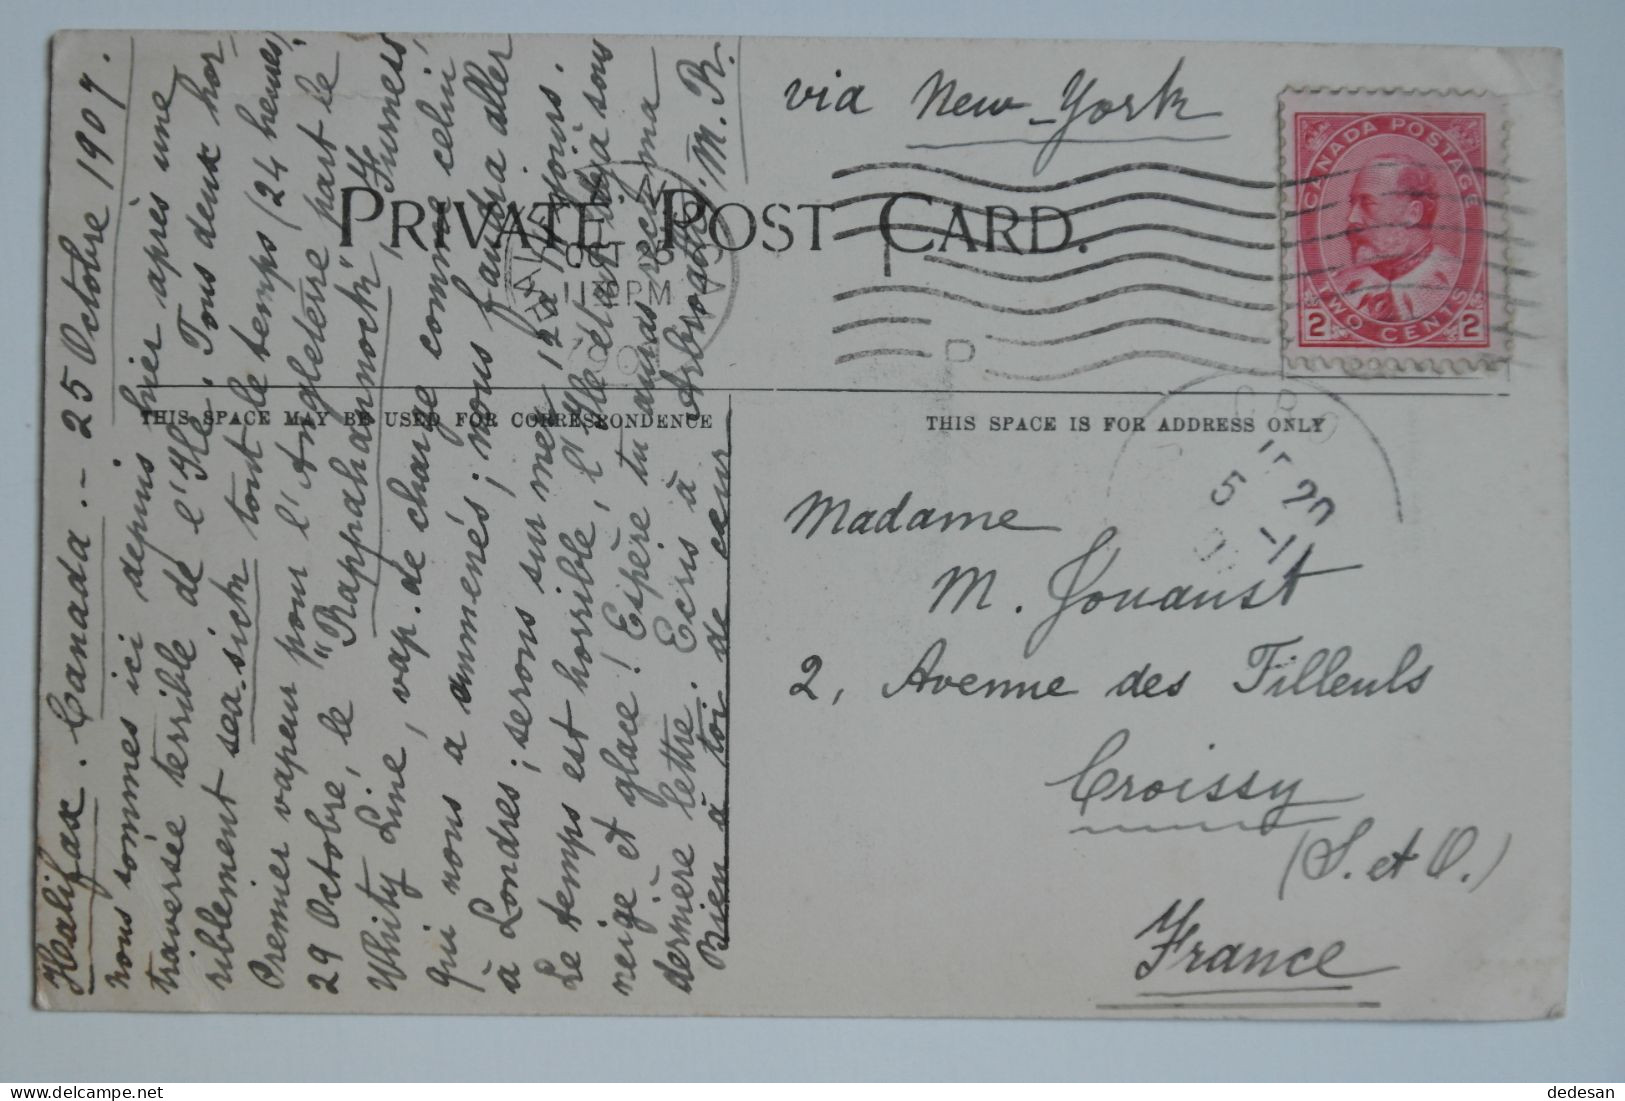 Halifax. Canada. - 25 Octobre 1907.
nous sommes ici depuis hier après une
traversée terrible de l'Ile. Tous deux hor-
riblement sea-sick tout le temps (24 heures).
Premier vapeur pour l'Angleterre part le
29 Octobre, le "Rappahannock", Furness
Whity Line, vap. de charge comme celui
qui nous a ammenés; nous faudra aller
à Londres; serons sur mer 12 à jours.
Le temps est horrible, l'Ile était déjà sous
neige et glace! Espère tu auras reçu ma
dernière lettre. Ecris à Arbroath. M. R.
Bien à toi de cœur
via New-York
PRIVATE POST CARD.
OCT 26
11 30 PM
CANADA POSTAGE
2 TWO CENTS 2
THIS SPACE MAY BE USED FOR CORRESPONDENCE
THIS SPACE IS FOR ADDRESS ONLY
P
20
5 -11
Madame
M. Jouaust
2, Avenue des Tilleuls
Croissy
(S. et O.)
France
delcampe.net
dedesan